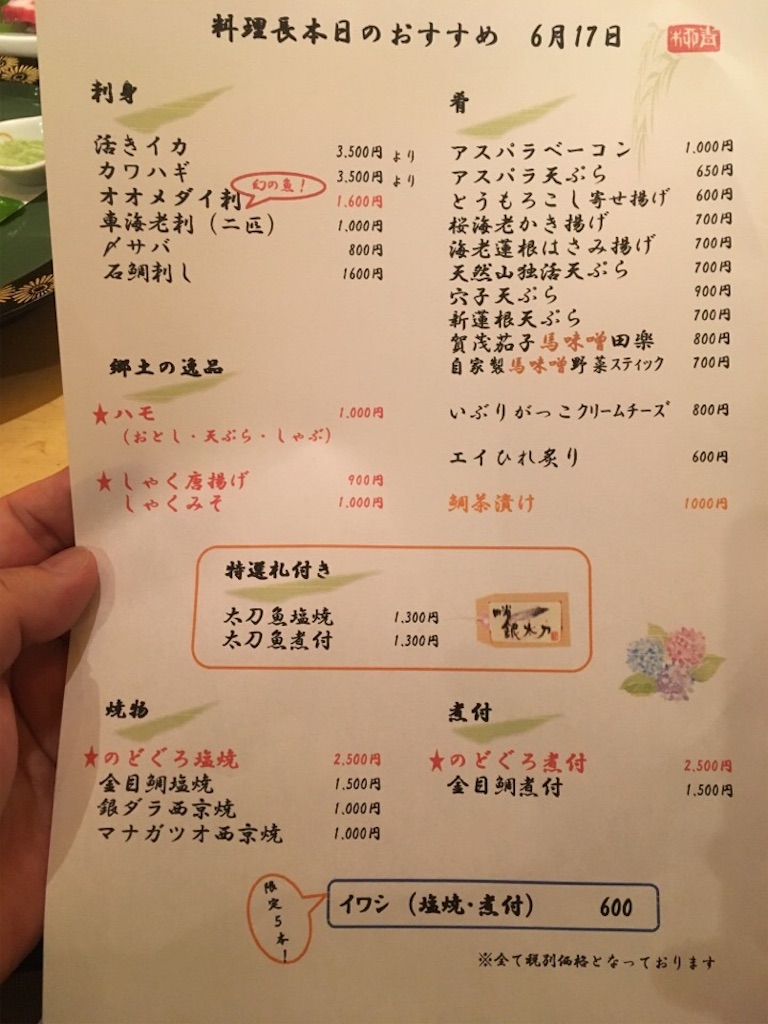 料理長本日のおすすめ 6月17日
刺身
活きイカ 3.500円 より
カワハギ 3.500円 より
幻の魚!
オオメダイ刺 1.600円
車海老刺(二匹) 1.000円
〆サバ 800円
石鯛刺し 1600円
郷土の逸品
★ハモ 1.000円
(おとし・天ぷら・しゃぶ)
★しゃく唐揚げ 900円
しゃくみそ 1.000円
肴
アスパラベーコン 1.000円
アスパラ天ぷら 650円
とうもろこし寄せ揚げ 600円
桜海老かき揚げ 700円
海老蓮根はさみ揚げ 700円
天然山独活天ぷら 700円
穴子天ぷら 900円
新蓮根天ぷら 700円
賀茂茄子馬味噌田楽 800円
自家製馬味噌野菜スティック 700円
いぶりがっこクリームチーズ 800円
エイひれ炙り 600円
鯛茶漬け 1000円
特選札付き
太刀魚塩焼 1.300円
太刀魚煮付 1.300円
銀太刀
焼物
★のどぐろ塩焼 2.500円
金目鯛塩焼 1.500円
銀ダラ西京焼 1.000円
マナガツオ西京焼 1.000円
煮付
★のどぐろ煮付 2.500円
金目鯛煮付 1.500円
限定5本!
イワシ (塩焼・煮付) 600
※全て税別価格となっております